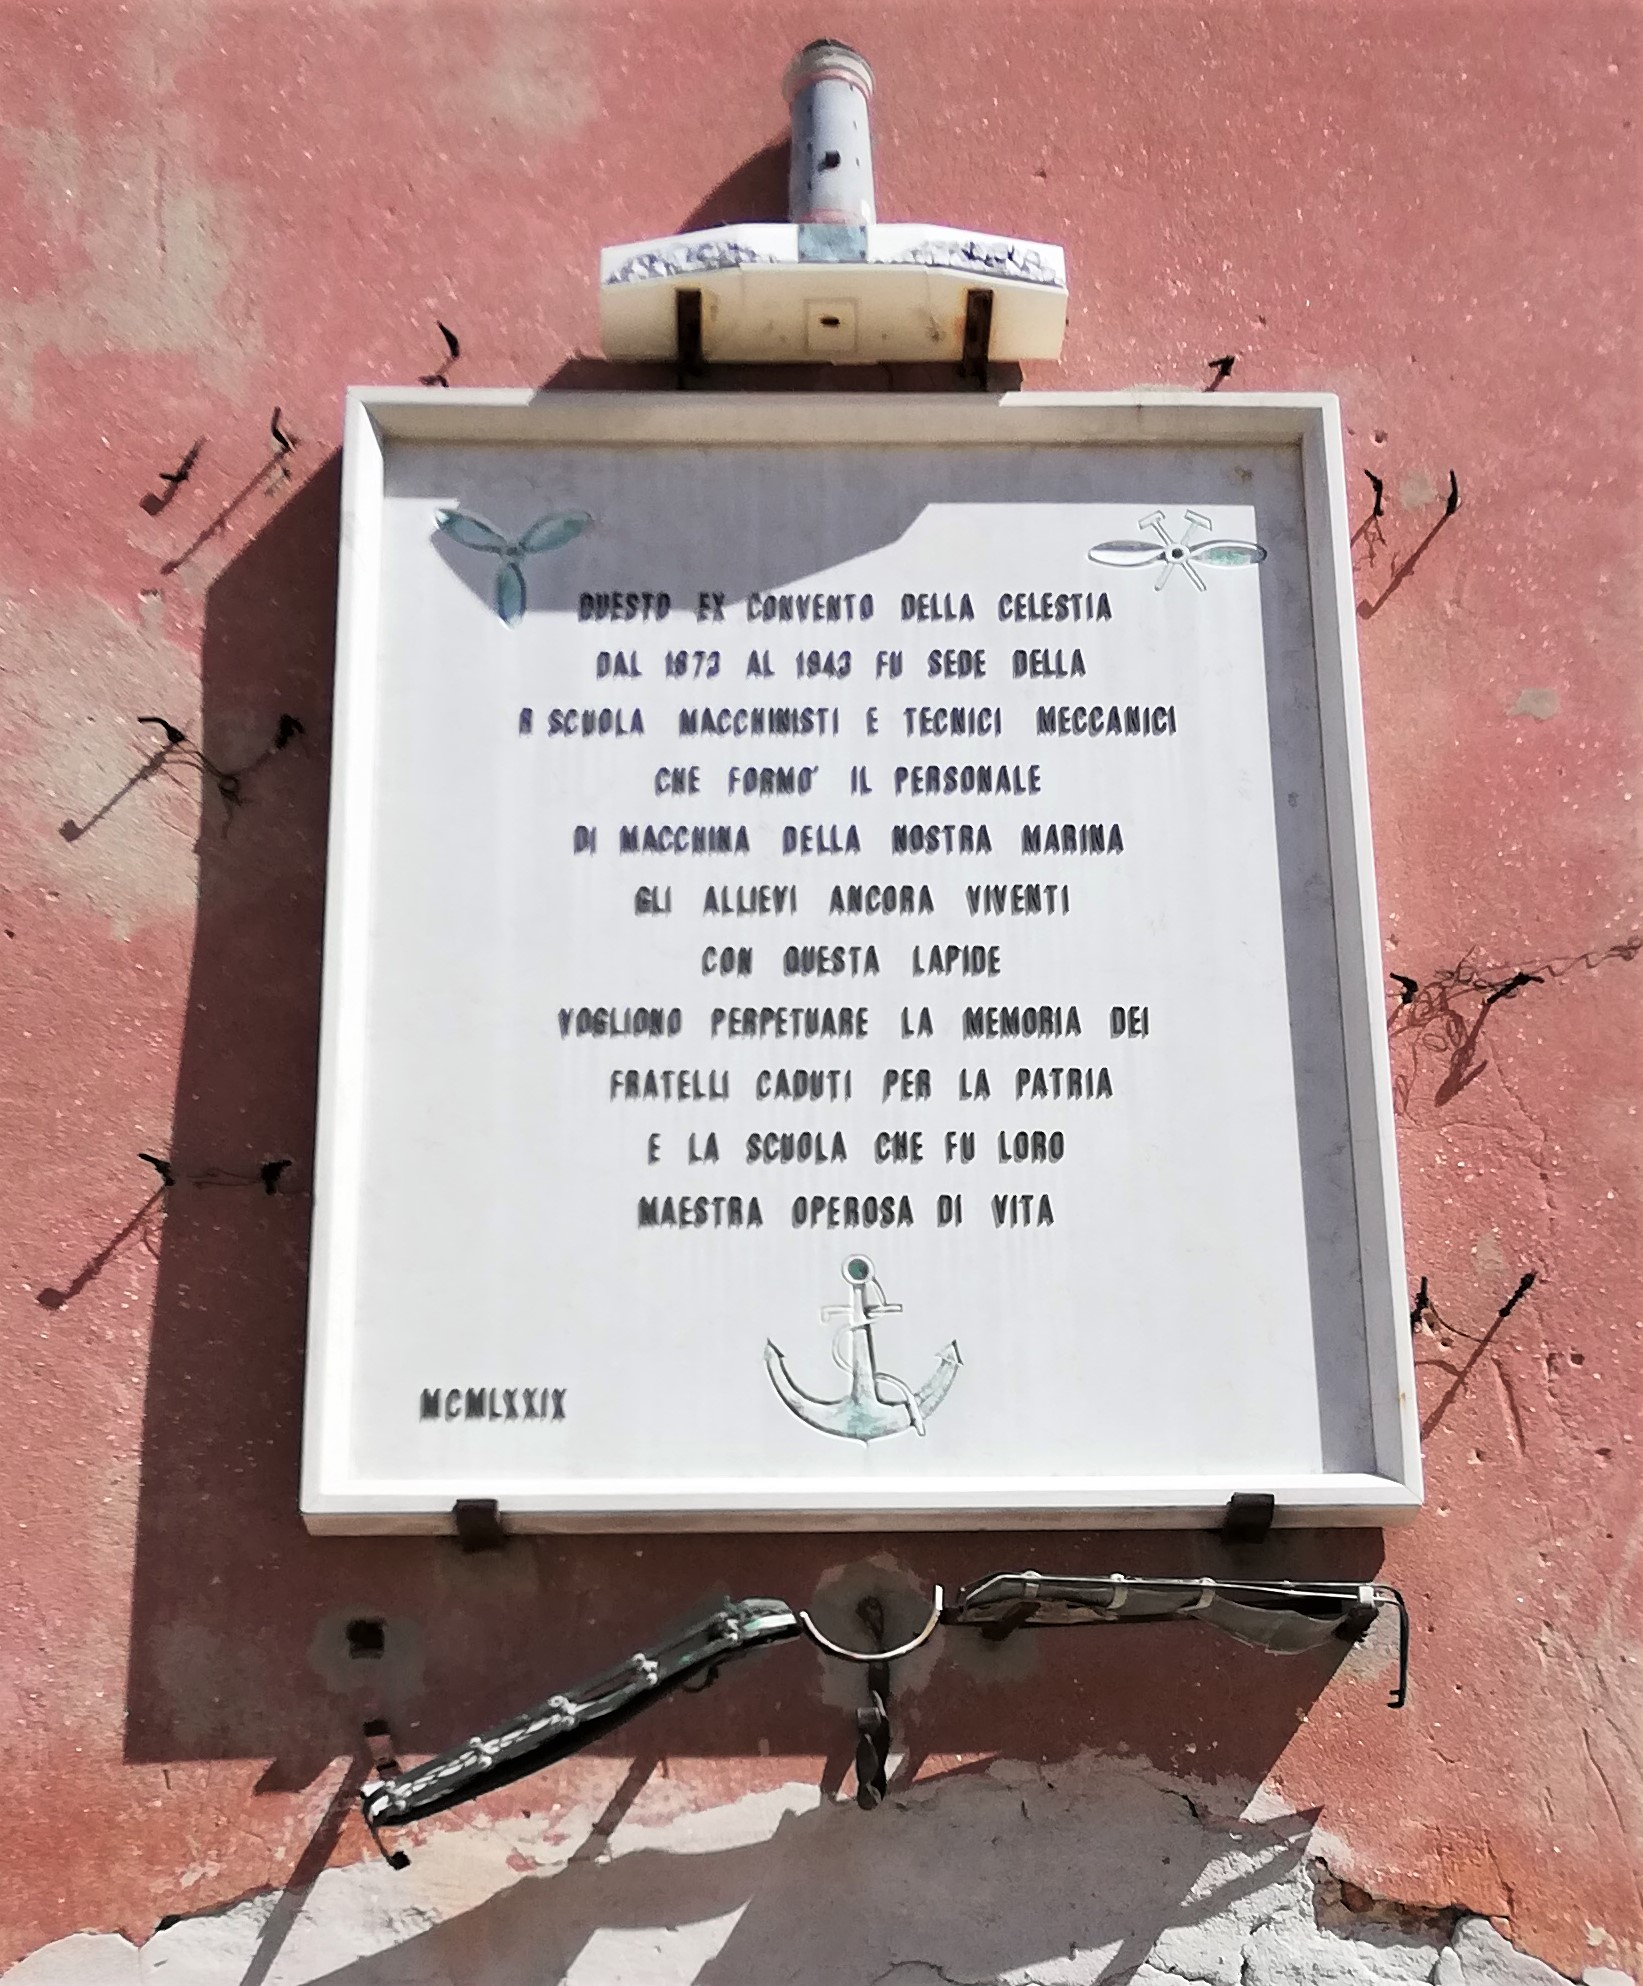 QUESTO EX CONVENTO DELLA CELESTIA
DAL 1873 AL 1943 FU SEDE DELLA
R SCUOLA MACCHINISTI E TECNICI MECCANICI
CHE FORMO' IL PERSONALE
DI MACCHINA DELLA NOSTRA MARINA
GLI ALLIEVI ANCORA VIVENTI
CON QUESTA LAPIDE
VOGLIONO PERPETUARE LA MEMORIA DEI
FRATELLI CADUTI PER LA PATRIA
E LA SCUOLA CHE FU LORO
MAESTRA OPEROSA DI VITA
MCMLXXIX